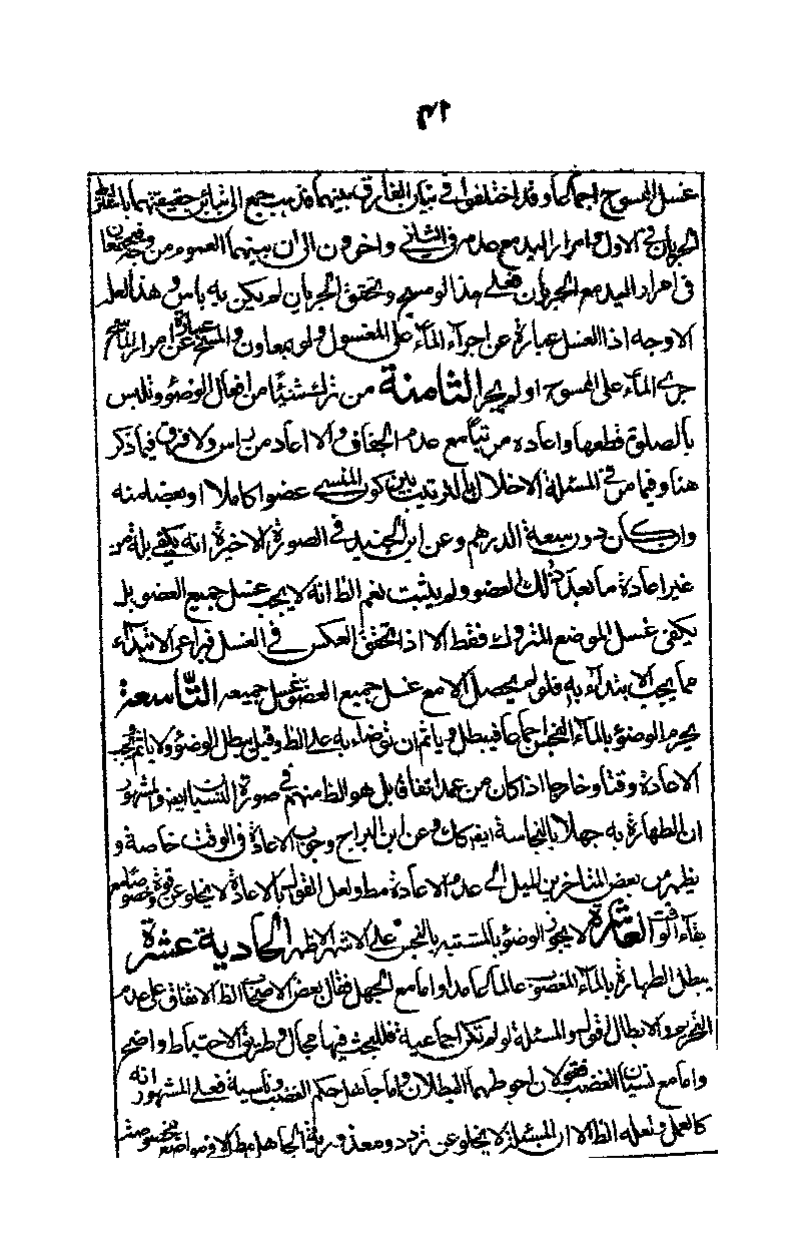 ٢٨
غسل الممسوح اجماعا وقد اختلفوا في بيان الفارق بينهما فذهب جمع الى تباين حقيقتهما باعتبار
الجريان في الاول وامرار اليد مع عدمه في الثاني واخرون الى ان بينهما العموم من وجه فيجتمعان
في امرار اليد مع الجريان فعلى هذا لو مسح وتحقق الجريان لم يكن به باس وهذا لعله
الاوجه اذ الغسل عبارة عن اجراء الماء على المغسول ولو بمعاون والمسح عبارة عن امرار الماسح
جرى الماء على الممسوح او لم يجر الثامنة من ترك شيئا من افعال الوضوء وتلبس
بالصلوة قطعها واعاده مرتبا مع عدم الجفاف والا اعاد من راس ولا فرق فيما ذكر
هنا وفيما مر في المسئلة الاخلال بالترتيب بين كون المنسي عضوا كاملا او بعضا منه
وان كان دون سعة الدرهم وعن ابن الجنيد في الصورة الاخيرة انه يكفي بلة من
غير اعادة ما بعد ذلك العضو ولم يثبت نعم الظ انه لا يجب غسل جميع العضو بل
يكفي غسل الموضع المتروك فقط الا اذا تحقق العكس في الغسل فيراعى الابتداء
مما يجب الابتداء به فلو لم يحصل الا مع غسل جميع العضو غسل جميعه التاسعة
يحرم الوضوء بالماء النجس اجماعا فيبطل وياثم ان توضاء به على الظ وقيل يبطل الوضوء ولا ياثم فتجب
الاعادة وقتا وخارجا اذا كان من عمد اتفاقا بل هو الظ منهم في صورة النسيان ايض والمشهور
ان الطهارة به جهلا بالنجاسة ايض كك وعن ابن البراج وجوب الاعادة في الوقت خاصة و
يظهر من بعض المتاخرين الميل الى عدم الاعادة مط ولعل القول بالاعادة لا يخلو عن قوة وخصوصا مع
بقاء الوقت العاشرة لا يجوز الوضوء بالمشتبه بالنجس على الاشهر الاظهر الحادية عشرة
يبطل الطهارة بالماء المغصوب عالما عامدا واما مع الجهل فقال بعض الاصحاب الظ الاتفاق على عدم
التحريم والابطال اقول والمسئلة لو لم تكن اجماعية فللبحث فيها مجال وطريق الاحتياط واضح
واما مع نسيان الغصب فقولان احوطهما البطلان واما جاهل حكم الغصب وناسيه فعلى المشهور انه
كالعمل ولعله الظ الا ان المسئلة لا يخلو عن تردد ومعذورية الجاهل مطلقا الا في مواضع مخصوصة